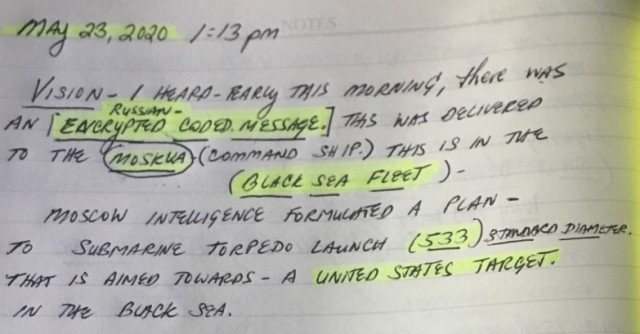 NOTES
MAY 23, 2020 1:13 pm
VISION - I HEARD - EARLY THIS MORNING, there was
RUSSIAN-
AN [ENCRYPTED CODED MESSAGE.] THIS WAS DELIVERED
TO THE (MOSKVA) (COMMAND SHIP.) THIS IS IN THE
(BLACK SEA FLEET) -
MOSCOW INTELLIGENCE FORMULATED A PLAN -
TO SUBMARINE TORPEDO LAUNCH (533) STANDARD DIAMETER.
THAT IS AIMED TOWARDS - A UNITED STATES TARGET.
IN THE BLACK SEA.